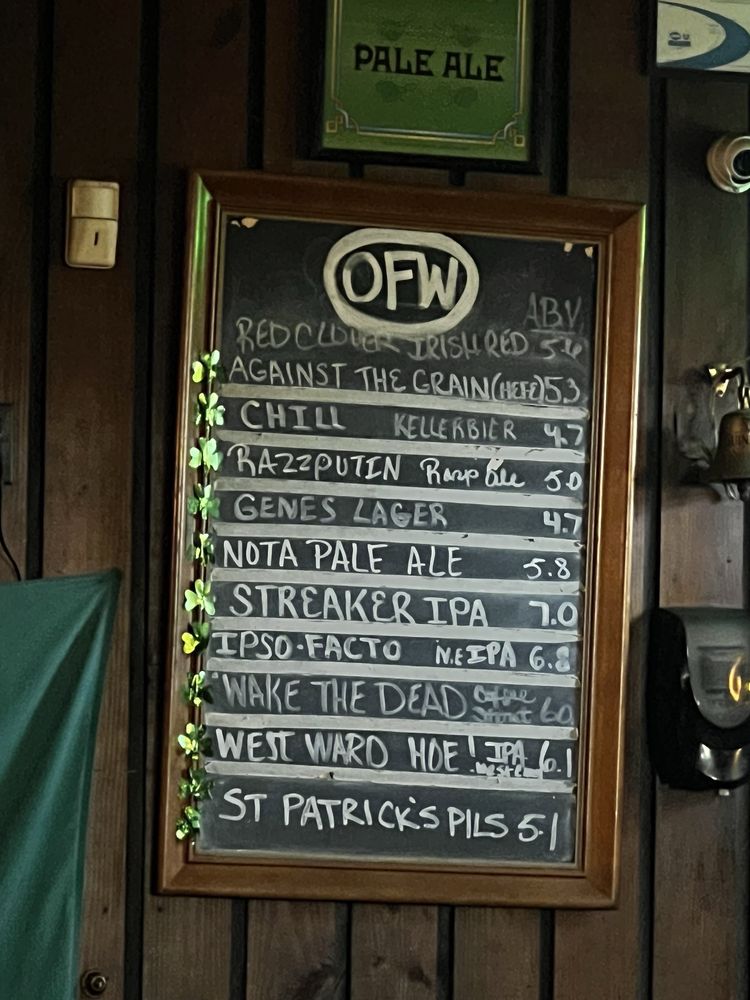 PALE ALE
OFW
ABV
RED CLOVER IRISH RED
AGAINST THE GRAIN (HEFE) 5.3
CHILL KELLERBIER 4.7
RAZZPUTIN Rasp ale 5.0
GENES LAGER 4.7
NOTA PALE ALE 5.8
STREAKER IPA 7.0
IPSO-FACTO N.E IPA 6.8
WAKE THE DEAD Coffee Stout 6.0
WEST WARD HOE! IPA 6.1
West Coast
ST PATRICK'S PILS 5.1